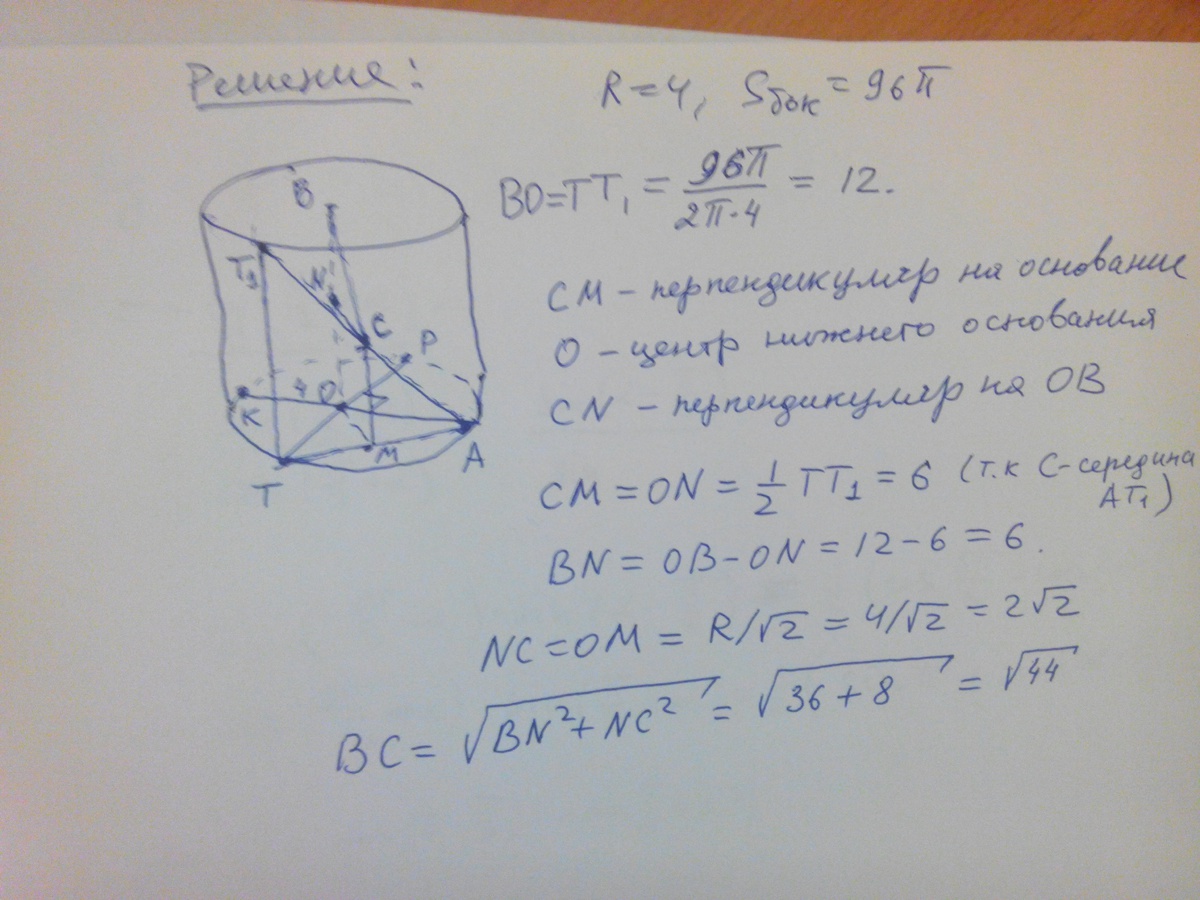 Решение:
R = 4, Sбок = 96π
BO = TT₁ = 96π / 2π·4 = 12.
CM – перпендикуляр на основание
O – центр нижнего основания
CN – перпендикуляр на OB
CM = ON = 1/2 TT₁ = 6 (т.к C-середина AT₁)
BN = OB – ON = 12 – 6 = 6.
NC = OM = R/√2 = 4/√2 = 2√2
BC = √BN² + NC² = √36 + 8 = √44
B
T₁
N
C
P
4
O
K
M
A
T